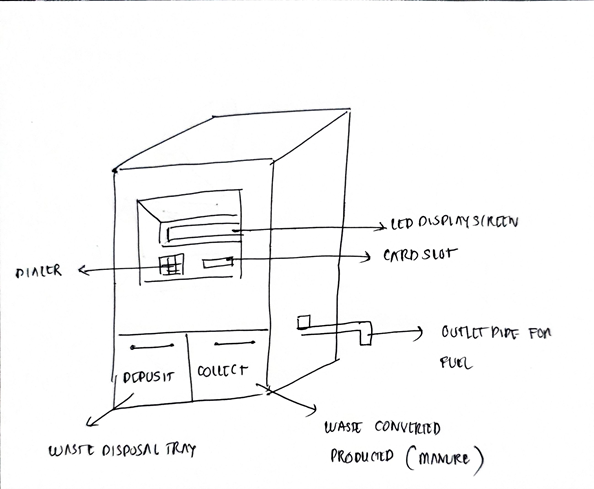 LED DISPLAY SCREEN
CARD SLOT
DIALER
OUTLET PIPE FOR
FUEL
DEPOSIT
COLLECT
WASTE DISPOSAL TRAY
WASTE CONVERTED
PRODUCTED (MANURE)